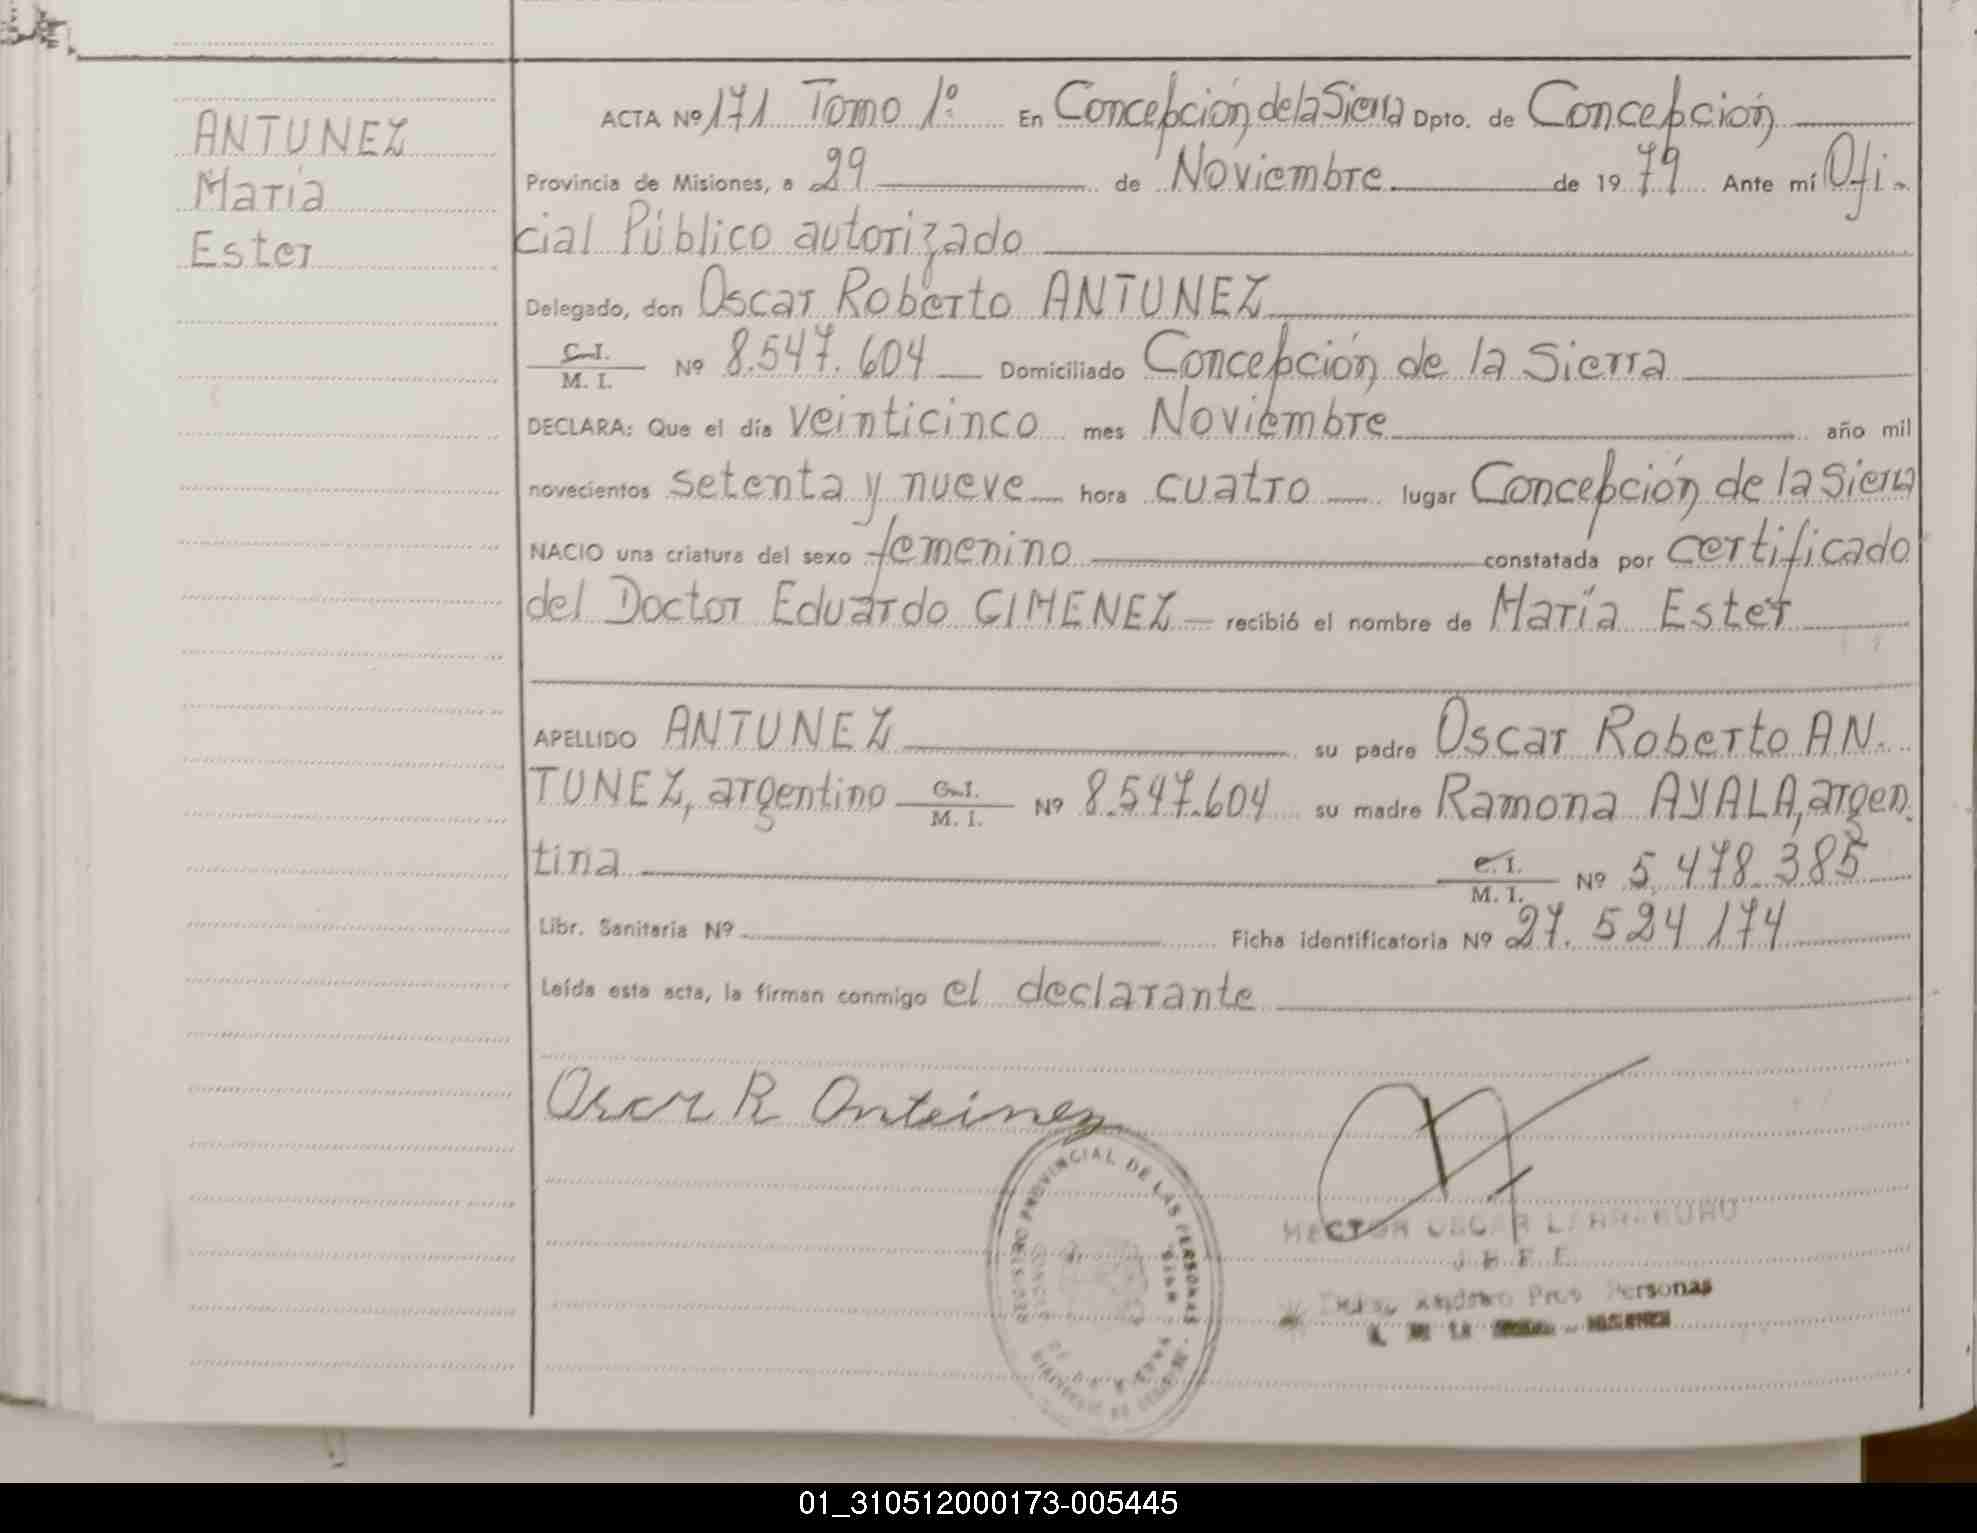 ANTUNEZ
María
Ester
ACTA Nº 171 Tomo 1º En Concepción de la Sierra Dpto. de Concepción
Provincia de Misiones, a 29 de Noviembre de 1979 Ante mí Ofi-
cial Público autorizado
Delegado, don Oscar Roberto ANTUNEZ
C.I. / M. I. Nº 8.547.604 Domiciliado Concepción de la Sierra
DECLARA: Que el día veinticinco mes Noviembre año mil
novecientos setenta y nueve hora cuatro lugar Concepción de la Sierra
NACIO una criatura del sexo femenino constatada por certificado
del Doctor Eduardo GIMENEZ recibió el nombre de María Ester
APELLIDO ANTUNEZ su padre Oscar Roberto AN-
TUNEZ, argentino C.I. / M. I. Nº 8.547.604 su madre Ramona AYALA, argen-
tina C.I. / M. I. Nº 5.478.385
Libr. Sanitaria Nº Ficha identificatoria Nº 27.524.174
Leída esta acta, la firman conmigo el declarante
Oscar R Antunez
REGISTRO PROVINCIAL DE LAS PERSONAS
HECTOR OSCAR
Personas
01_310512000173-005445